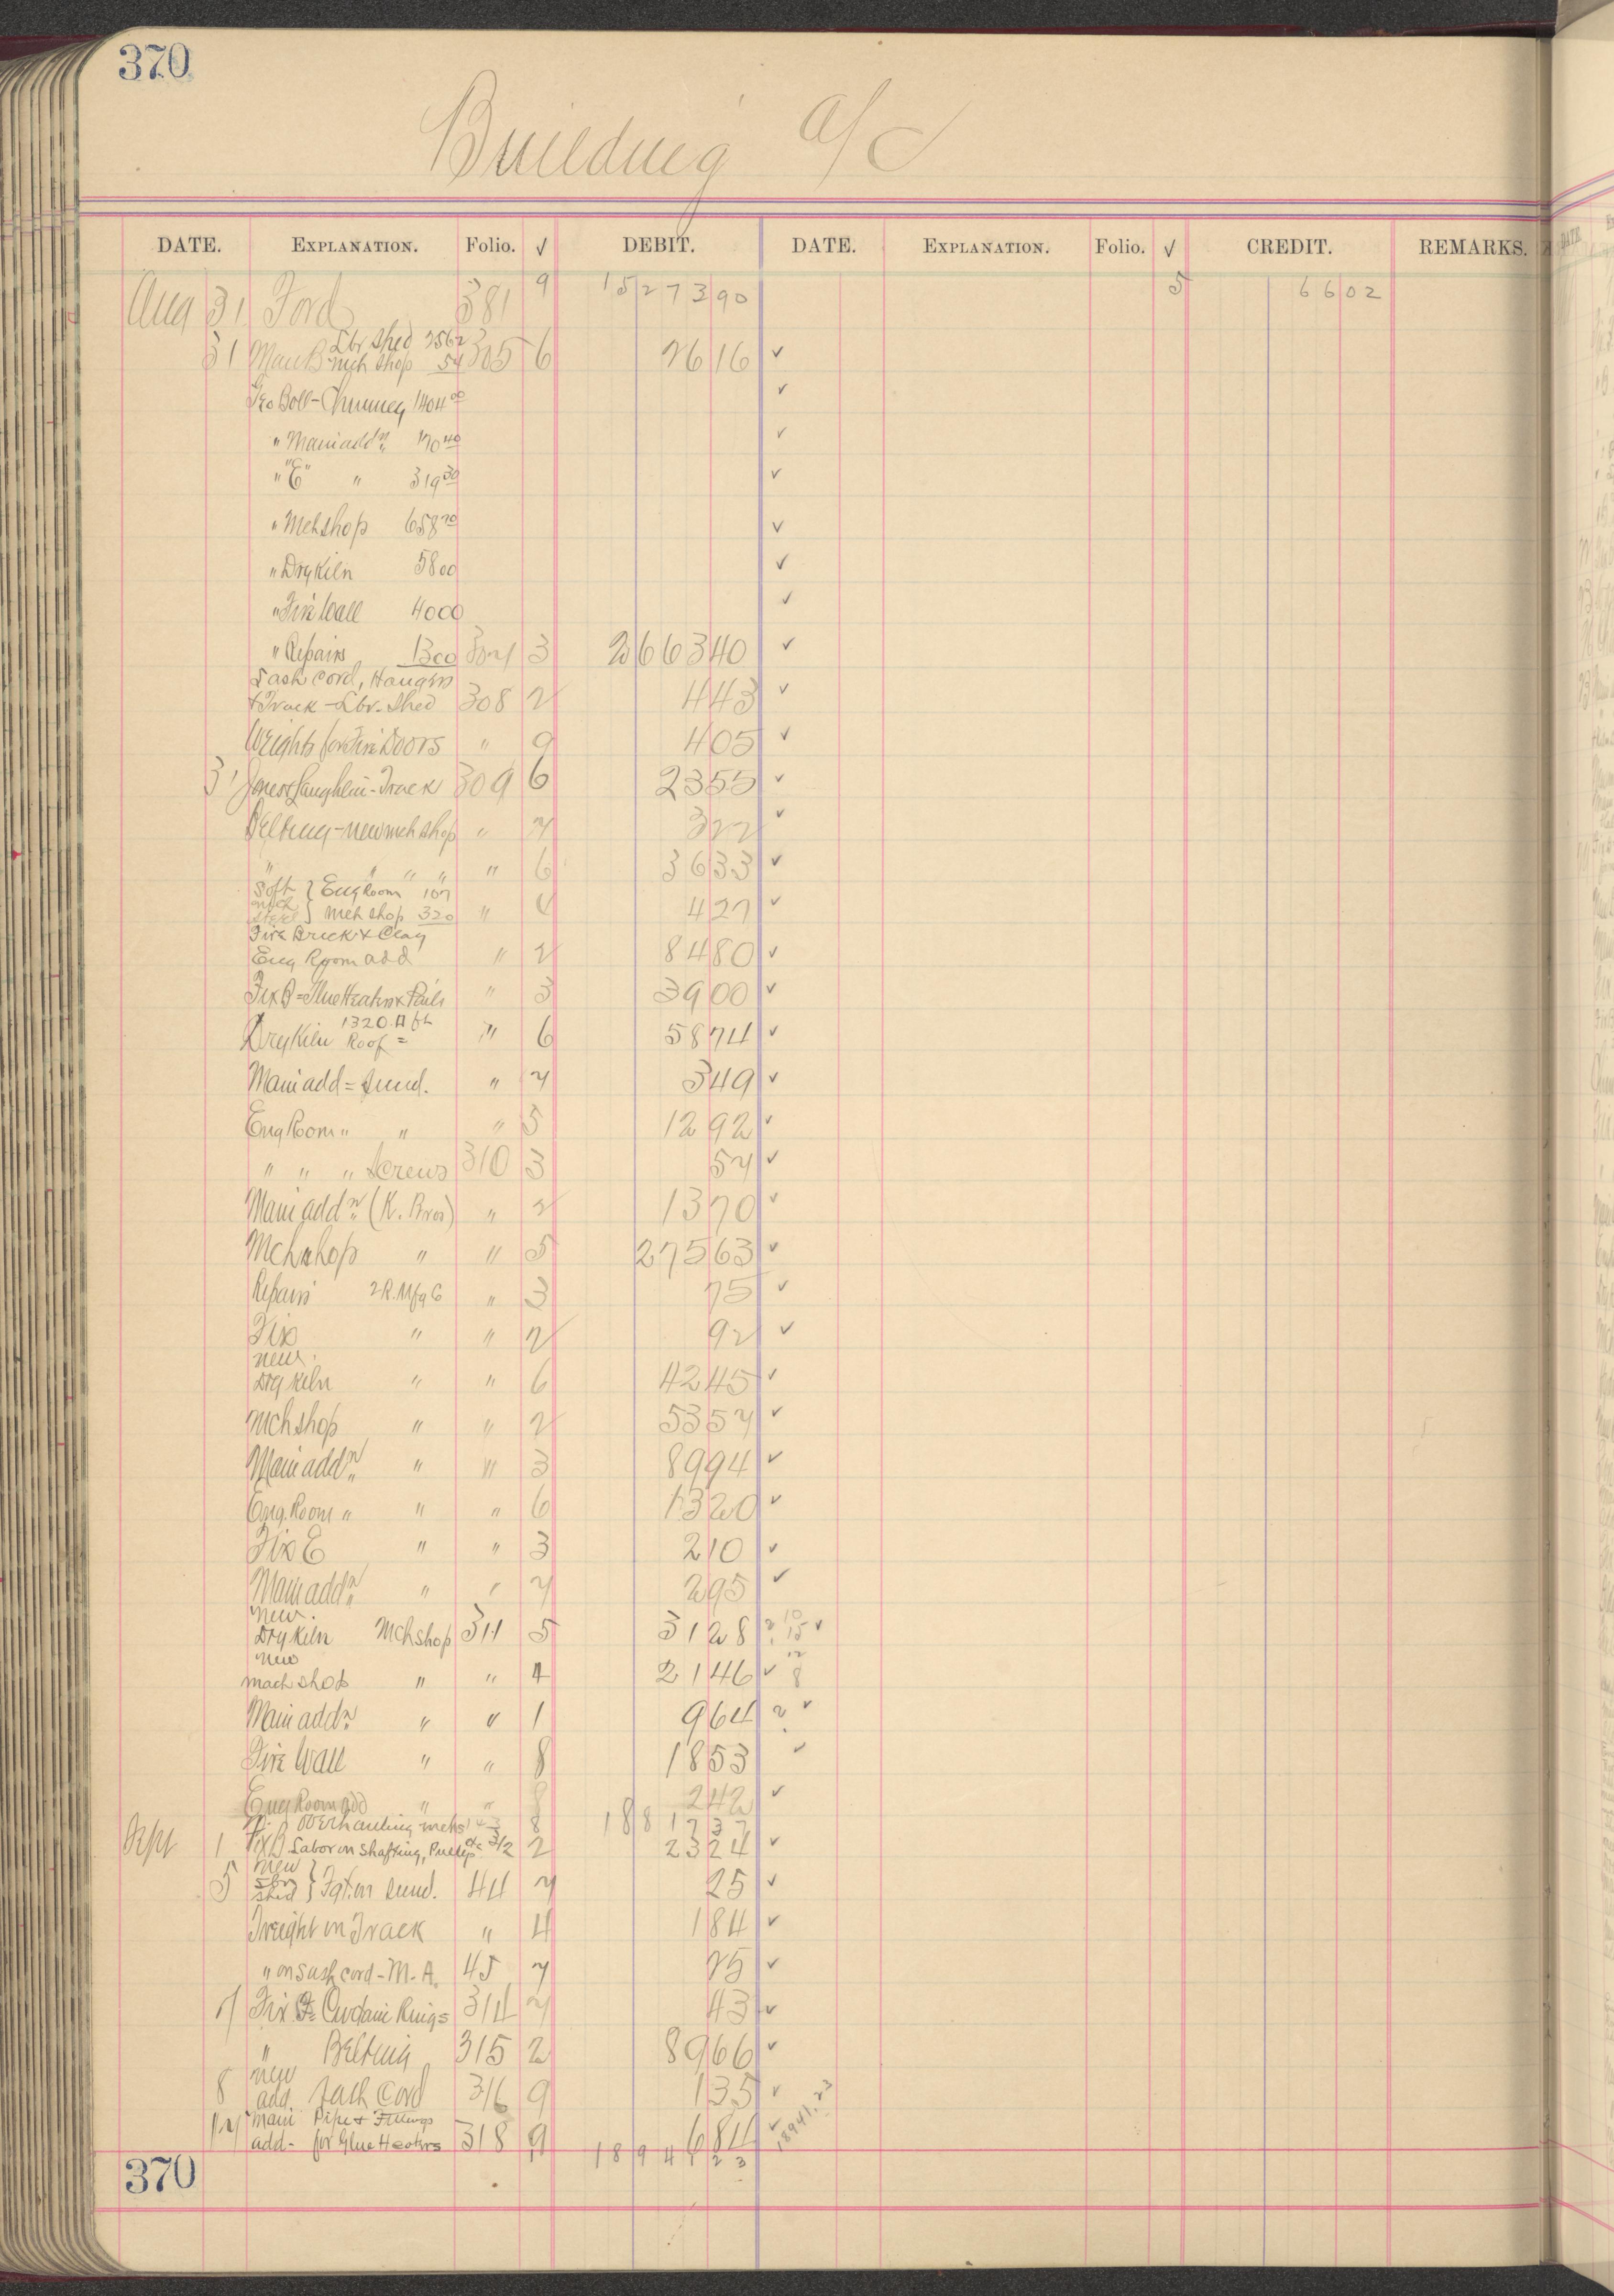 370
Building a/c
DATE. EXPLANATION. Folio. √ DEBIT. DATE. EXPLANATION. Folio. √ CREDIT. REMARKS.
Aug 31 Ford 381 9 15273 90 5 66 02
Lbr Shed 2562
31 Man B Mch Shop 54 305 6 26 16 ✓
Geo Boll - Chimney 1404 00 ✓
" Main add'n 170 40 ✓
" "E" " 319 30 ✓
" Mch shop 658 70 ✓
" Dry Kiln 58 00 ✓
" Fire Wall 40 00 ✓
" Repairs 13 00 3 2663 40 ✓
Sash Cord, Hangers
& Track - Lbr. Shed 308 2 4 43 ✓
Weights for Fire Doors " 9 4 05 ✓
31 Jones & Laughlin - Track 309 6 23 55 ✓
Belting - new mch shop " 7 3 22 ✓
" " " " " 6 36 33 ✓
Soft } Eng Room 107
mch
steel } Mch shop 320 " 4 4 27 ✓
Fire Brick & Clay
Eng Room add " 2 84 80 ✓
Fix B = Glue Heaters & Pails " 3 39 00 ✓
1320 # ft
Dry Kiln Roof = " 6 58 74 ✓
Main add = Sund. " 7 3 49 ✓
Eng Room " " " 5 12 92 ✓
" " " Screws 310 3 57 ✓
Main add'n (K. Bros) " 2 13 70 ✓
Mch shop " " 5 275 63 ✓
Repairs 2 R. Mfg C " 3 75 ✓
Fix " " 2 92 ✓
new
Dry Kiln " " 6 42 45 ✓
Mch shop " " 2 53 57 ✓
Main add'n " " 3 89 94 ✓
Eng. Room " " " 6 13 20 ✓
Fix E " " 3 2 10 ✓
Main add'n " " 7 2 95 ✓
new
Dry Kiln Mch shop 311 5 31 28 10 15 ✓
new
mach shop " " 4 21 46 ✓ 12 8
Main add'n " " 1 9 64 2 ✓
Fire Wall " " 8 18 53 ✓
Eng Room add " " 8 2 42 ✓
overhauling mchs 8 18817 37
Sept 1 Fix B Labor on Shafting, Pulleys &c 312 2 23 24 ✓
new }
5 Lbr Shed } Fgt. on Sund. 44 7 25 ✓
Freight on Track " 4 1 84 ✓
" on Sash Cord - M. A. 45 7 25 ✓
7 Fix F = Curtain Rings 314 7 43 ✓
" Belting 315 2 89 66 ✓
new
8 add. Sash Cord 316 9 1 35 ✓
Main Pipe & Fittings
add - for Glue Heaters 318 9 6 84 ✓
18941.23
18941 23
370